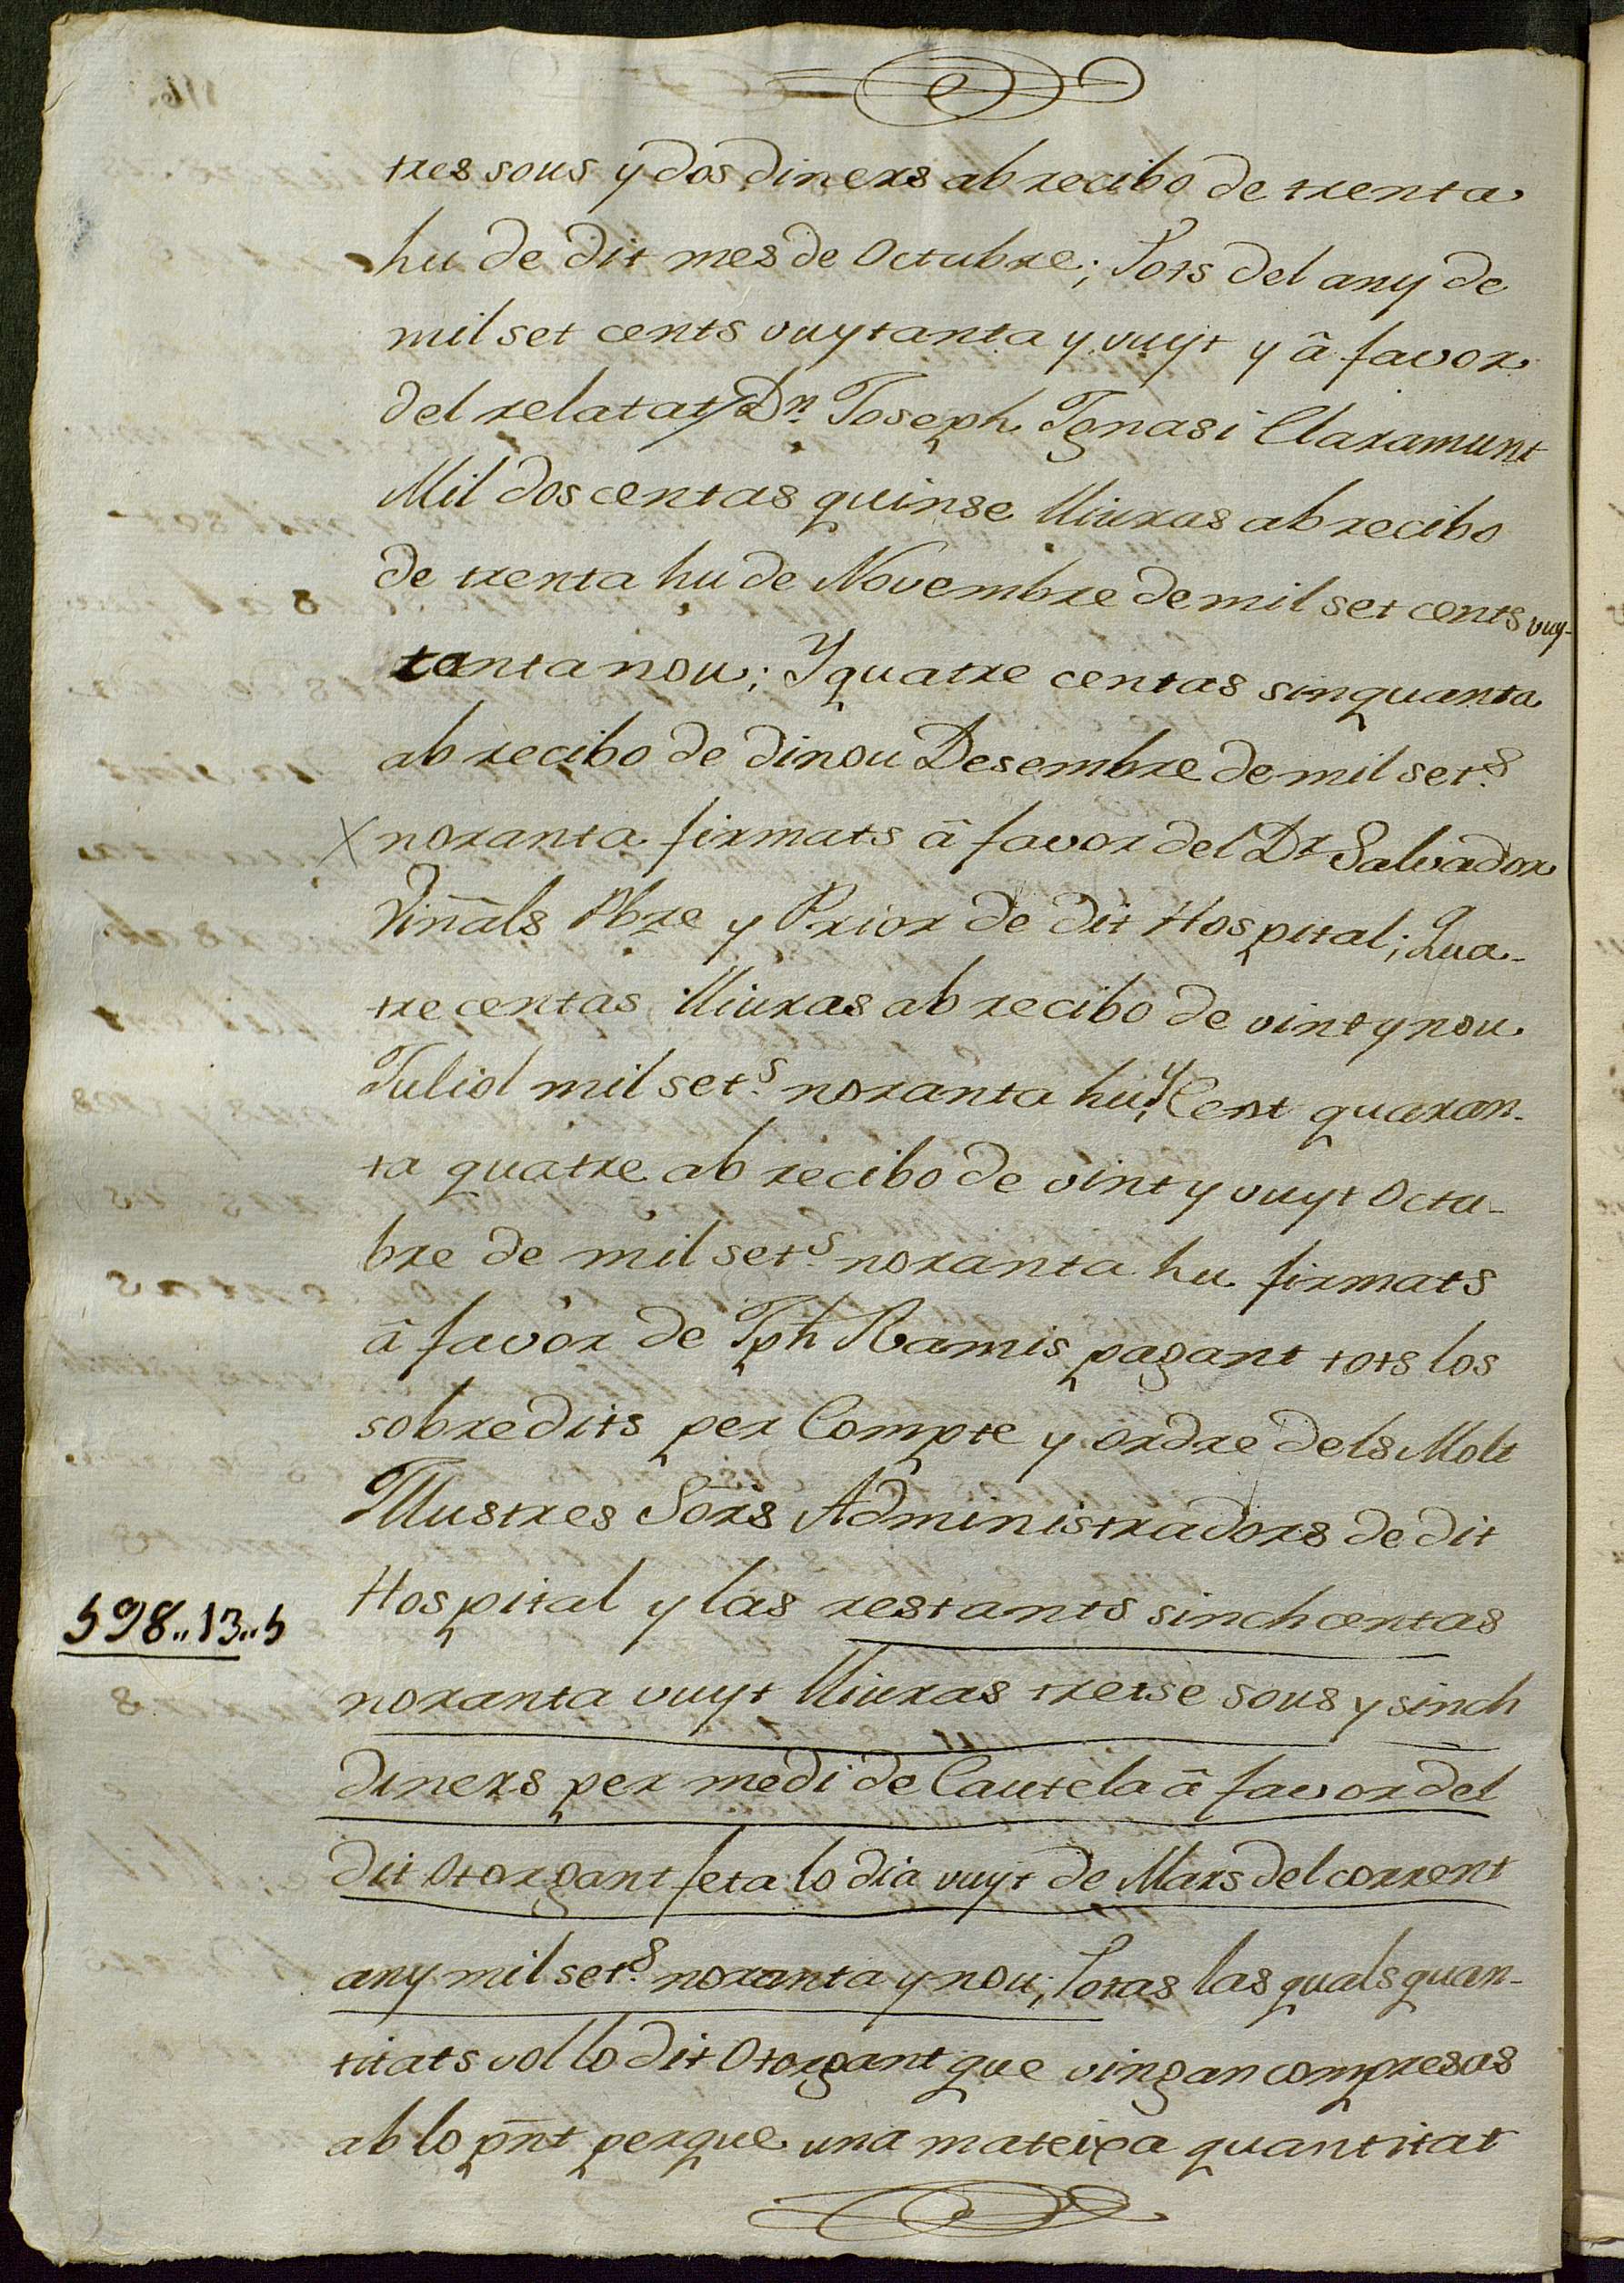 tres sous y dos diners ab recibo de trenta
hu de dit mes de Octubre; Tots del any de
mil set cents vuytanta y vuyt y â favor
del relatat Dn. Joseph Ignasi Claramunt
Mil dos centas quinse lliuras ab recibo
de trenta hu de Novembre de mil set cents vuy-
tanta nou; Y quatre centas sinquanta
ab recibo de dinou Desembre de mil sets.
X noranta firmats â favor del Dr. Salvador
Viñals Pbre y Prior de dit Hospital; Qua-
tre centas lliuras ab recibo de vint y nou
Juliol mil sets. noranta hu; y Cent quaran-
ta quatre ab recibo de vint y vuyt Octu-
bre de mil sets. noranta hu firmats
â favor de Jph Ramis pagant tots los
sobredits per Compte y ordre dels Molt
Illustres Sors Administradors de dit
598..13..5 Hospital y las restants sinch centas
noranta vuyt lliuras tretse sous y sinch
diners per medi de Cautela â favor del
dit Otorgant feta lo dia vuyt de Mars del corrent
any mil sets. noranta y nou; Totas las quals quan-
titats vol lo dit Otorgant que vingan compresas
ab lo pnt perque una mateixa quantitat